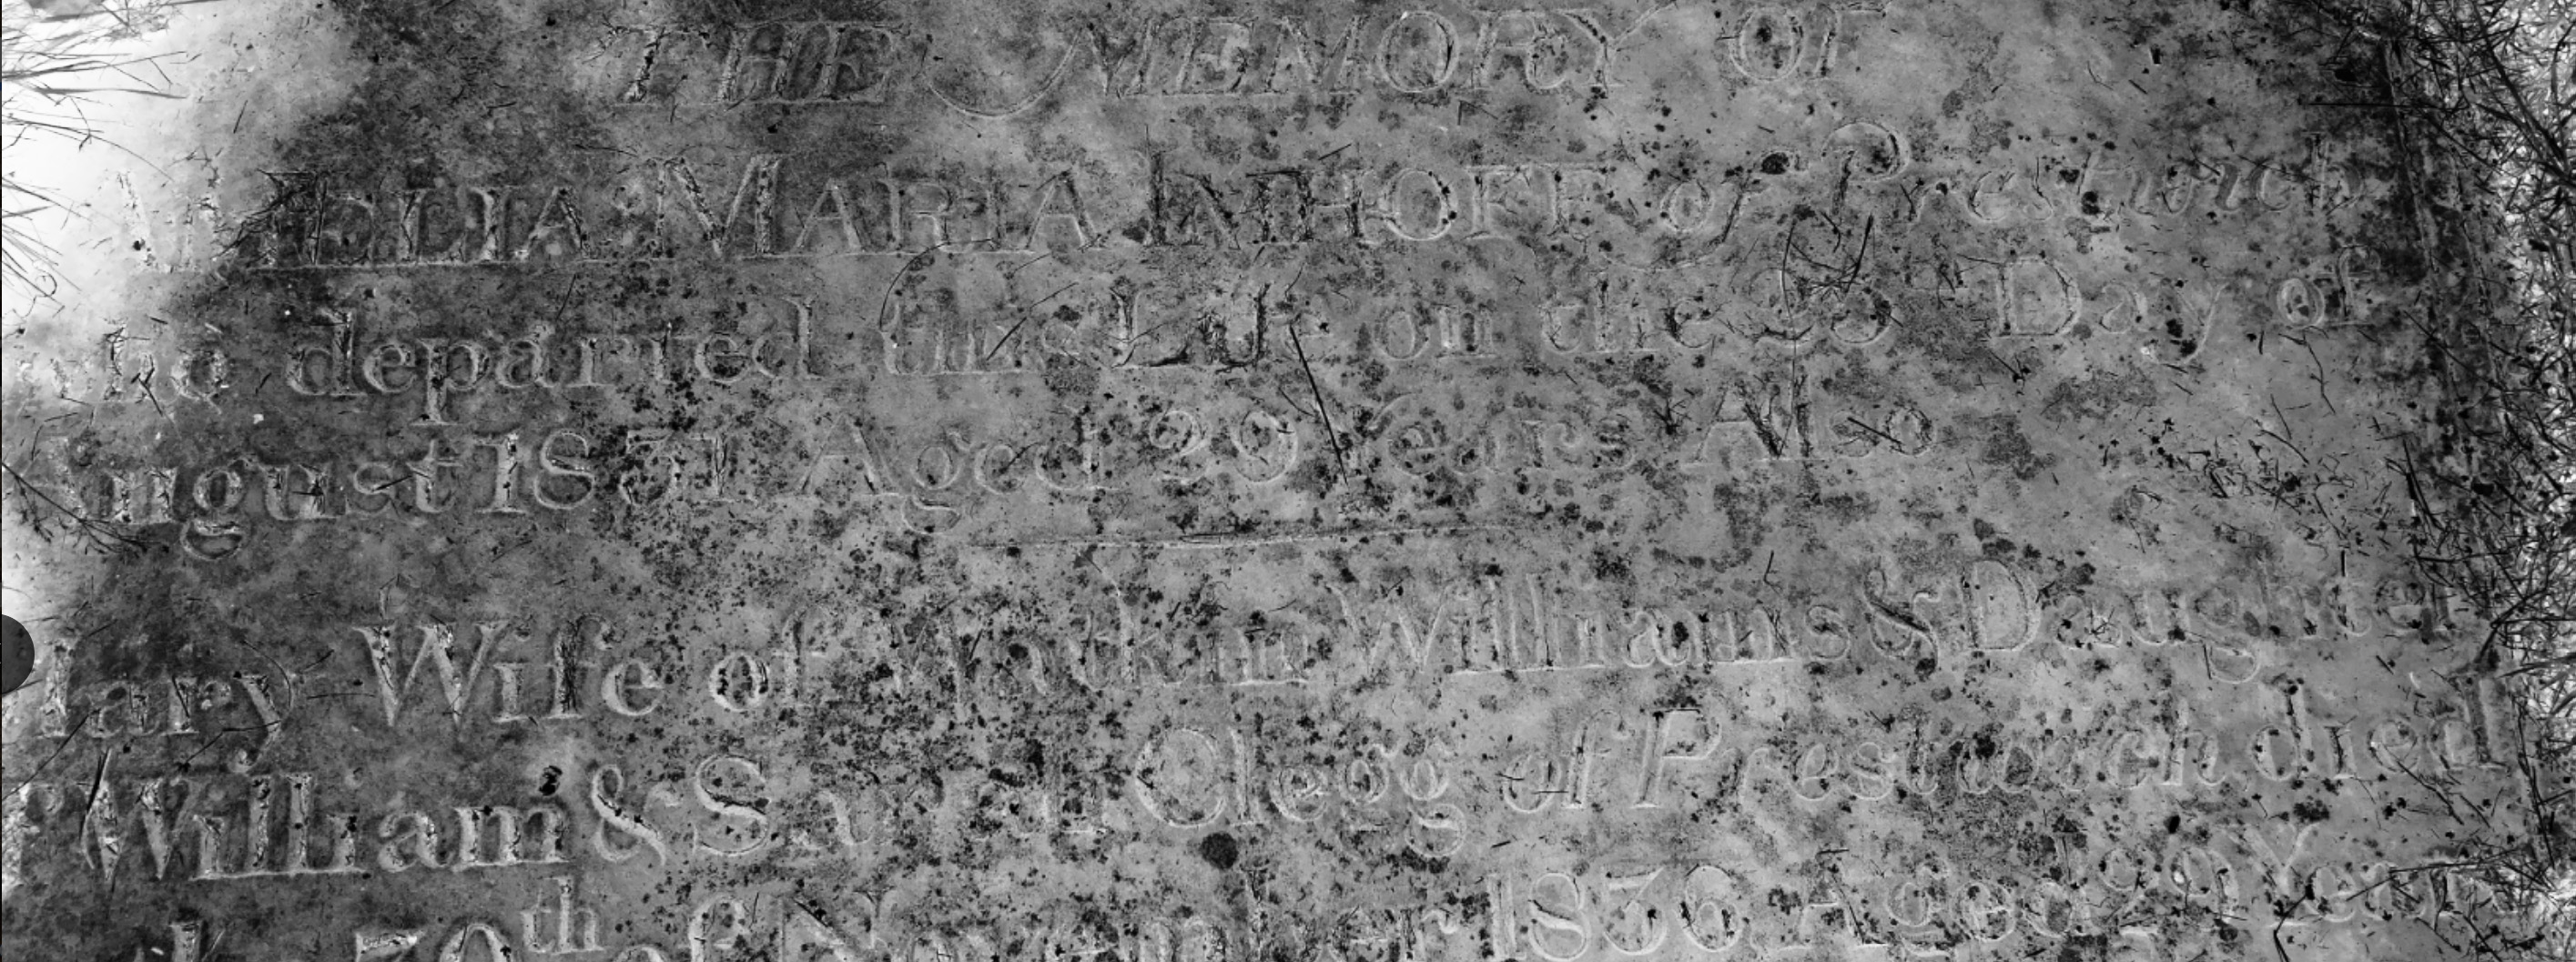 THE MEMORY OF
AELIA MARIA INHOFF of Prestwich
who departed this Life on the Day of
August 1831 Aged 29 Years Also
Mary Wife of Williams & Daughter
of William & Sarah Clegg of Prestwich died
30th of November 1836 Aged 29 Years